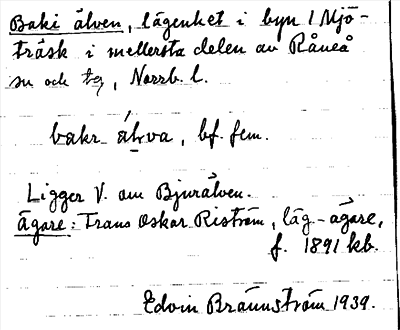 Baki älven, lägenhet i byn 1 Mjö-
träsk i mellersta delen av Råneå
sn och tg, Norrb. l.
bakı älva, bf. fem.
Ligger V. om Bjurälven.
Ägare: Frans Oskar Riström, läg.-ägare,
f. 1891 kb.
Edvin Brännström 1939.